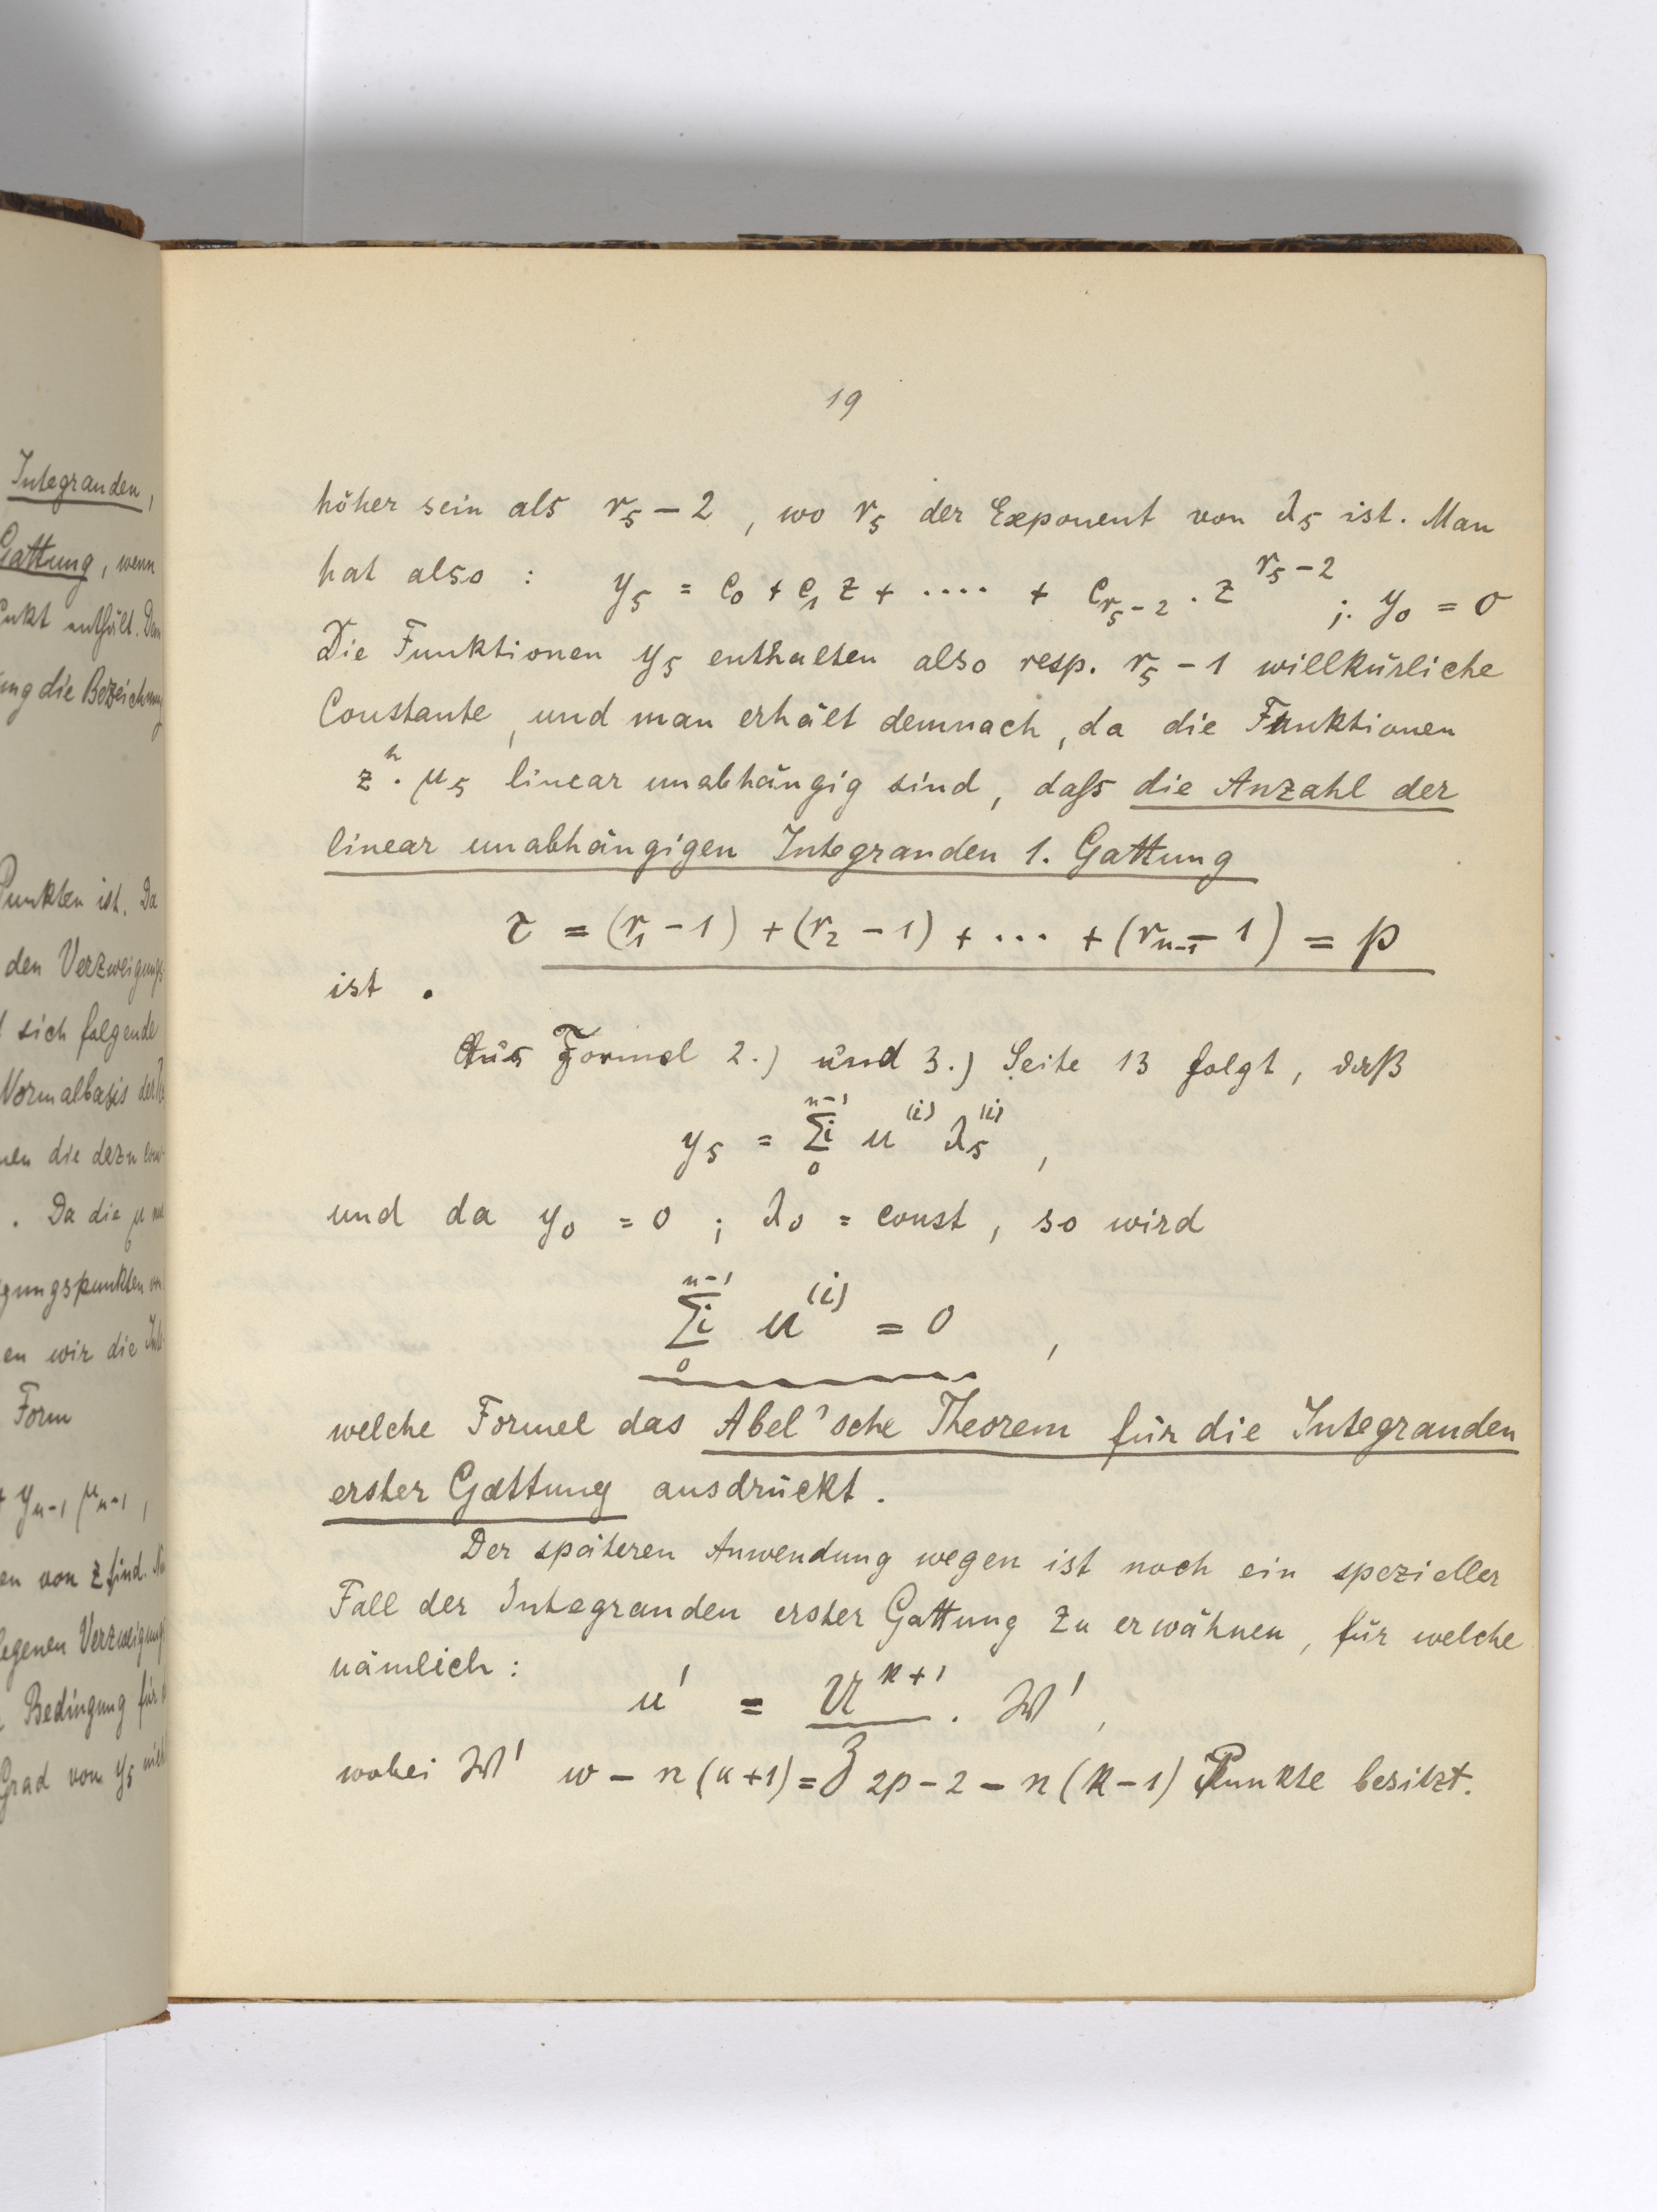 Integranden,
Gattung, wenn
den Verzweigungs
sich folgende
Normalbasis der
. Da die μ
en wir die
Form
+ y_{n-1} μ_{n-1},
en von z sind.
Bedingung für
Grad von y_s
19
höher sein als r_s - 2, wo r_s der Exponent von λ_s ist. Man
hat also : y_s = c_0 + c_1 z + .... + c_{r_s-2} . z^{r_s-2} ; y_0 = 0
Die Funktionen y_s enthalten also resp. r_s - 1 willkürliche
Constante, und man erhält demnach, da die Funktionen
z^h . μ_s linear unabhängig sind, daſs die Anzahl der
linear unabhängigen Integranden 1. Gattung
τ = (r_1 - 1) + (r_2 - 1) + ... + (r_{n-1} - 1) = p
ist .
Aus Formel 2.) und 3.) Seite 13 folgt, daß
y_s = Σ_i_0^{n-1} u^{(i)} λ_s^{(i)} ,
und da y_0 = 0 ; λ_0 = const, so wird
Σ_i_0^{n-1} u^{(i)} = 0 ,
welche Formel das Abel'sche Theorem für die Integranden
erster Gattung ausdrückt.
Der späteren Anwendung wegen ist noch ein spezieller
Fall der Integranden erster Gattung zu erwähnen, für welche
nämlich :
u' = U^{k+1} / Z . W' ,
wobei W' w - n(k+1) = 2p - 2 - n(k-1) Punkte besitzt.